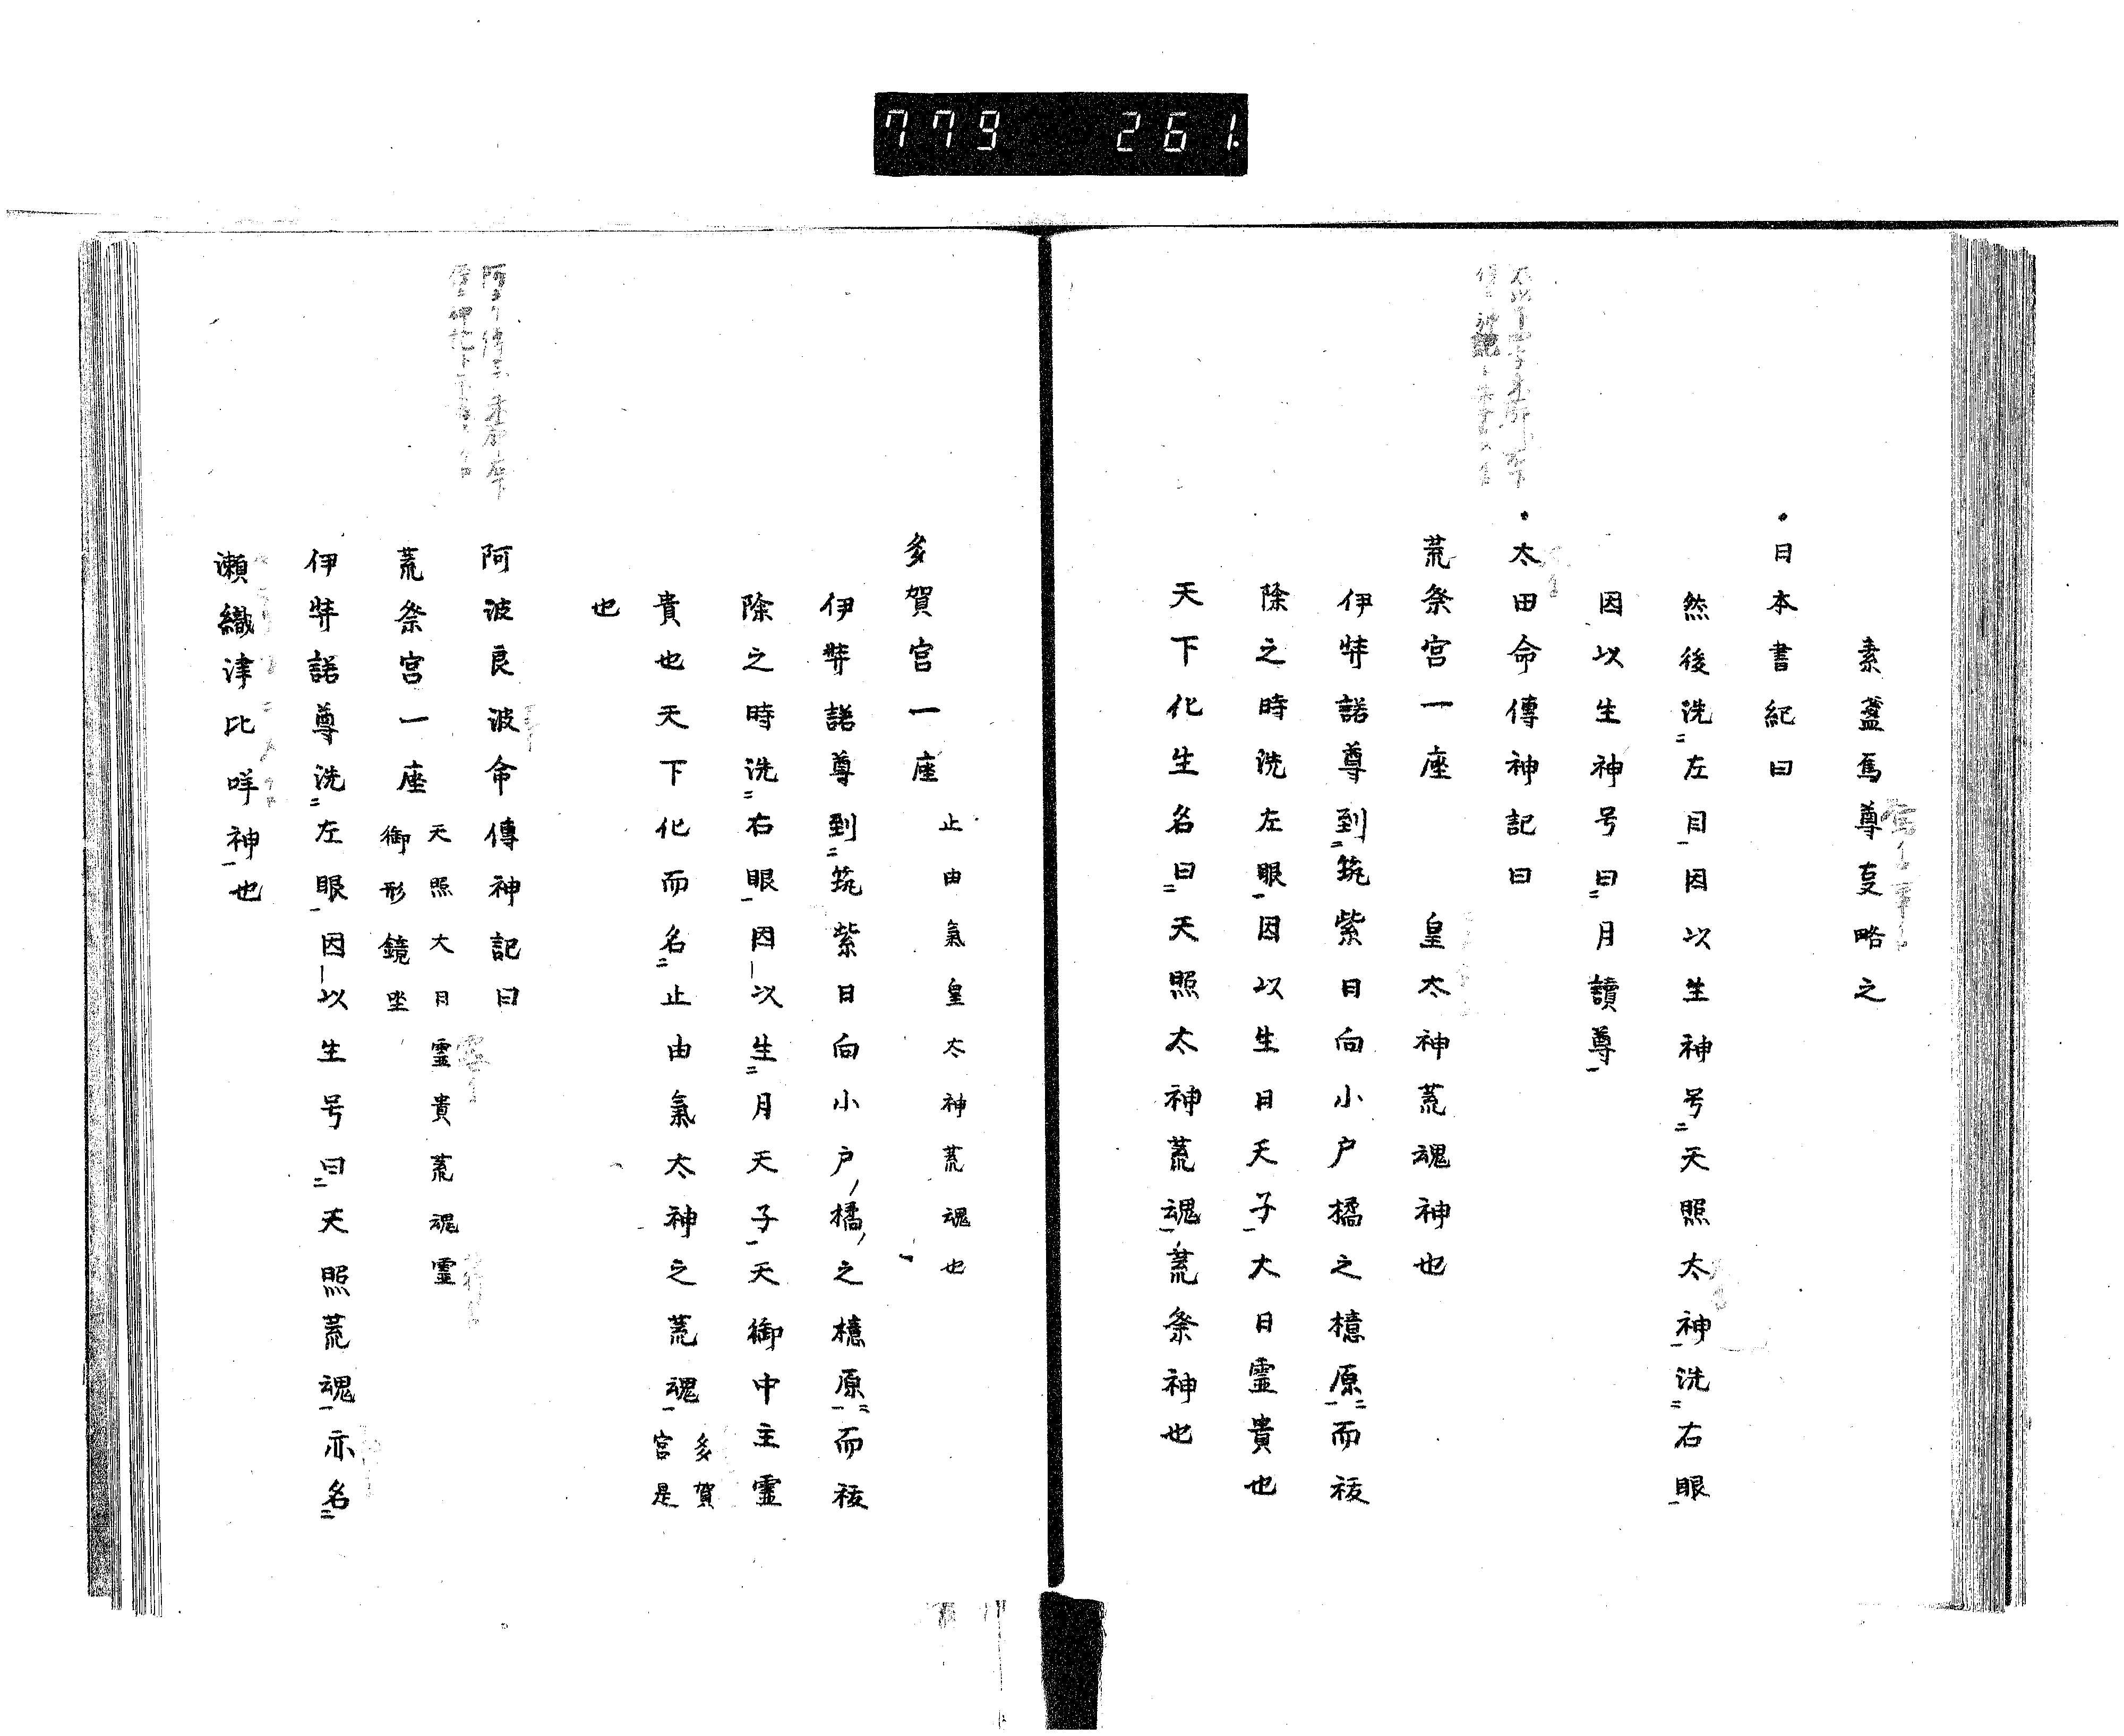 779 261
素盞烏尊㕝略之
・日本書紀曰
然後洗左目因以生神号天照太神洗右眼
因以生神号曰月讀尊
・太田命傳神記曰
荒祭宮一座 皇太神荒魂神也
伊弉諾尊到筑紫日向小戸橘之檍原而祓
除之時洗左眼因以生日天子大日霊貴也
天下化生名曰天照太神荒魂荒祭神也
多賀宮一座 止由氣皇太神荒魂也
伊弉諾尊到筑紫日向小戸橘之檍原而祓
除之時洗右眼因以生月天子天御中主霊
貴也天下化而名止由氣太神之荒魂 多賀
宮是
也
阿波良波命傳神記曰
荒祭宮一座 天照大日霊貴荒魂霊
御形鏡坐
伊弉諾尊洗左眼因以生号曰天照荒魂亦名
瀬織津比咩神也